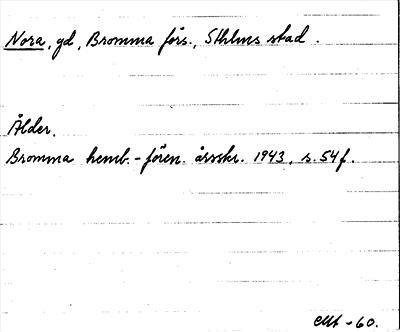 Nora, gd, Bromma förs., Sthlms stad.
Ålder.
Bromma hemb.-fören. årsskr. 1943, s. 54 f.
-60.